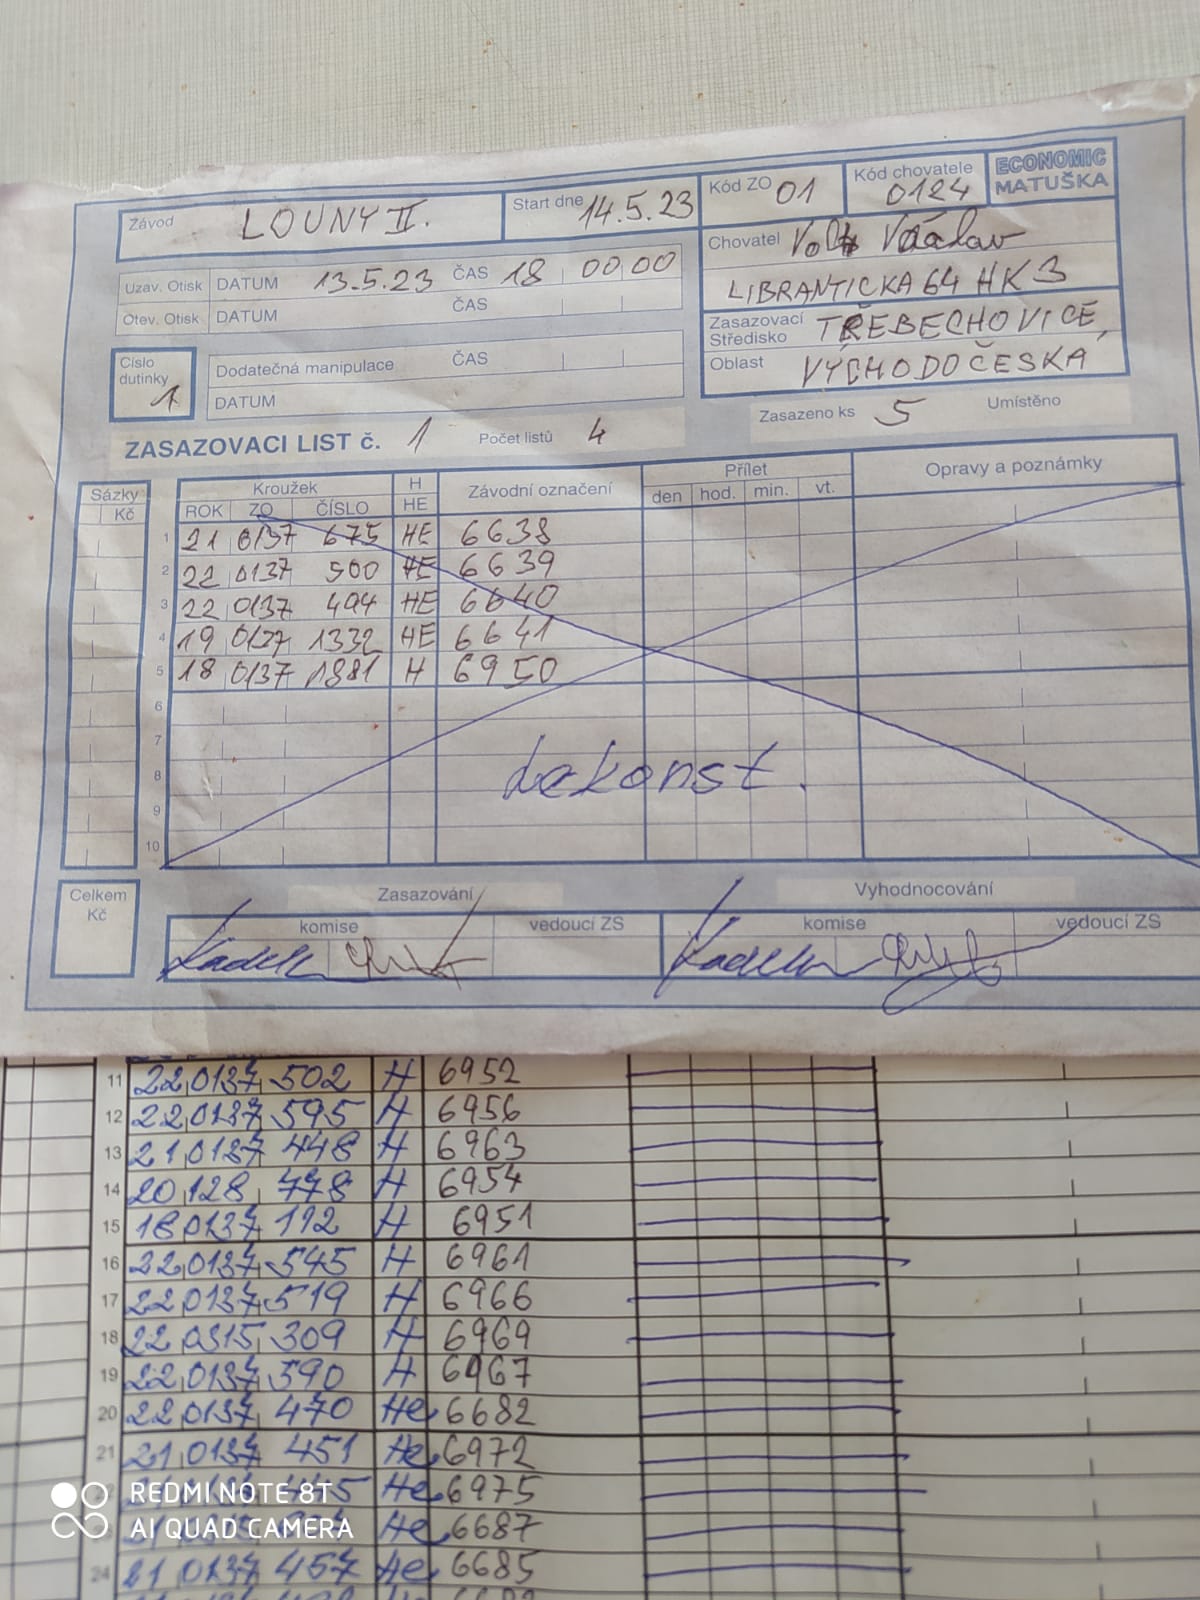 Závod LOUNY II. Start dne 14.5.23 Kód ZO 01 Kód chovatele 0124 ECONOMIC MATUŠKA
Uzav. Otisk DATUM 13.5.23 ČAS 18 00 00
Otev. Otisk DATUM ČAS
Chovatel Václav
LIBRANTICKA 64 HK 3
Zasazovací Středisko TŘEBECHOVICE,
Oblast VÝCHODOČESKA
Číslo dutinky 1
Dodatečná manipulace ČAS
DATUM
Zasazeno ks 5 Umístěno
ZASAZOVACI LIST č. 1 Počet listů 4
Sázky Kroužek H Závodní označení Přílet Opravy a poznámky
Kč ROK ZO ČÍSLO HE den hod. min. vt.
1 21 0137 675 HE 6638
2 22 0137 500 HE 6639
3 22 0137 494 HE 6640
4 19 0137 1332 HE 6641
5 18 0137 1981 H 6950
6
7
8
9
10
dekonst.
Celkem Kč
Zasazování Vyhodnocování
komise vedoucí ZS komise vedoucí ZS
11 22 0137 502 H 6952
12 22 0137 595 H 6956
13 21 0137 448 H 6963
14 20 128 778 H 6954
15 18 0137 192 H 6951
16 22 0137 545 H 6961
17 22 0137 519 H 6966
18 22 0315 309 H 6969
19 22 0137 590 H 6967
20 22 0137 470 He 6682
21 21 0137 451 He 6972
He 6975
He 6687
24 21 0137 457 He 6685
REDMI NOTE 8T
AI QUAD CAMERA